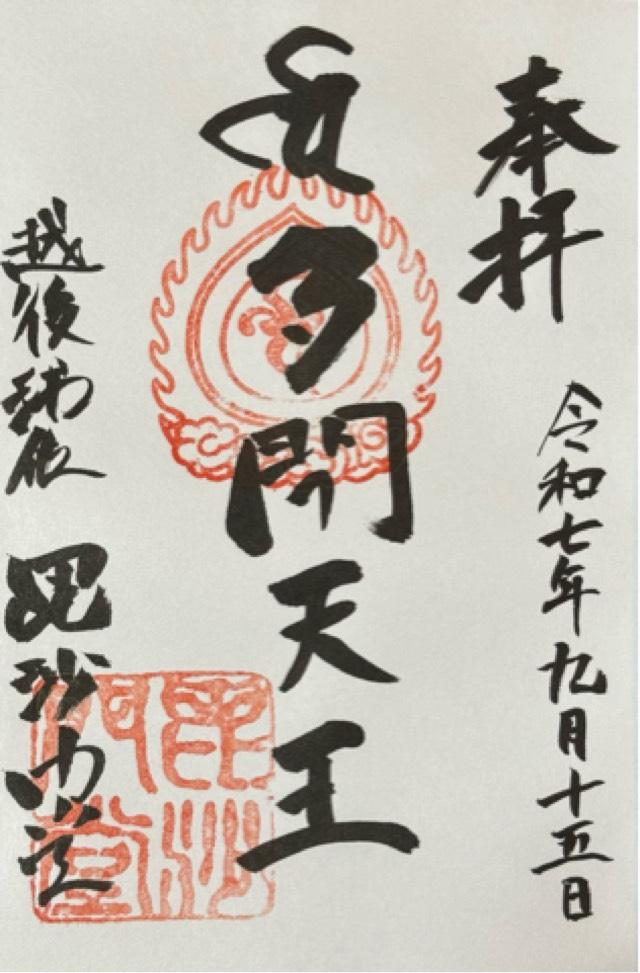 奉拝
令和七年九月十五日
多聞天王
越後浦佐 毘沙門堂
毘沙門堂